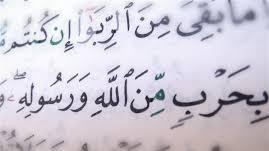 مَا بَقِىَ مِنَ ٱلرِّبَوٰٓا۟ إِن كُنتُم
بِحَرْبٍ مِّنَ ٱللَّهِ وَرَسُولِهِۦ ۖ